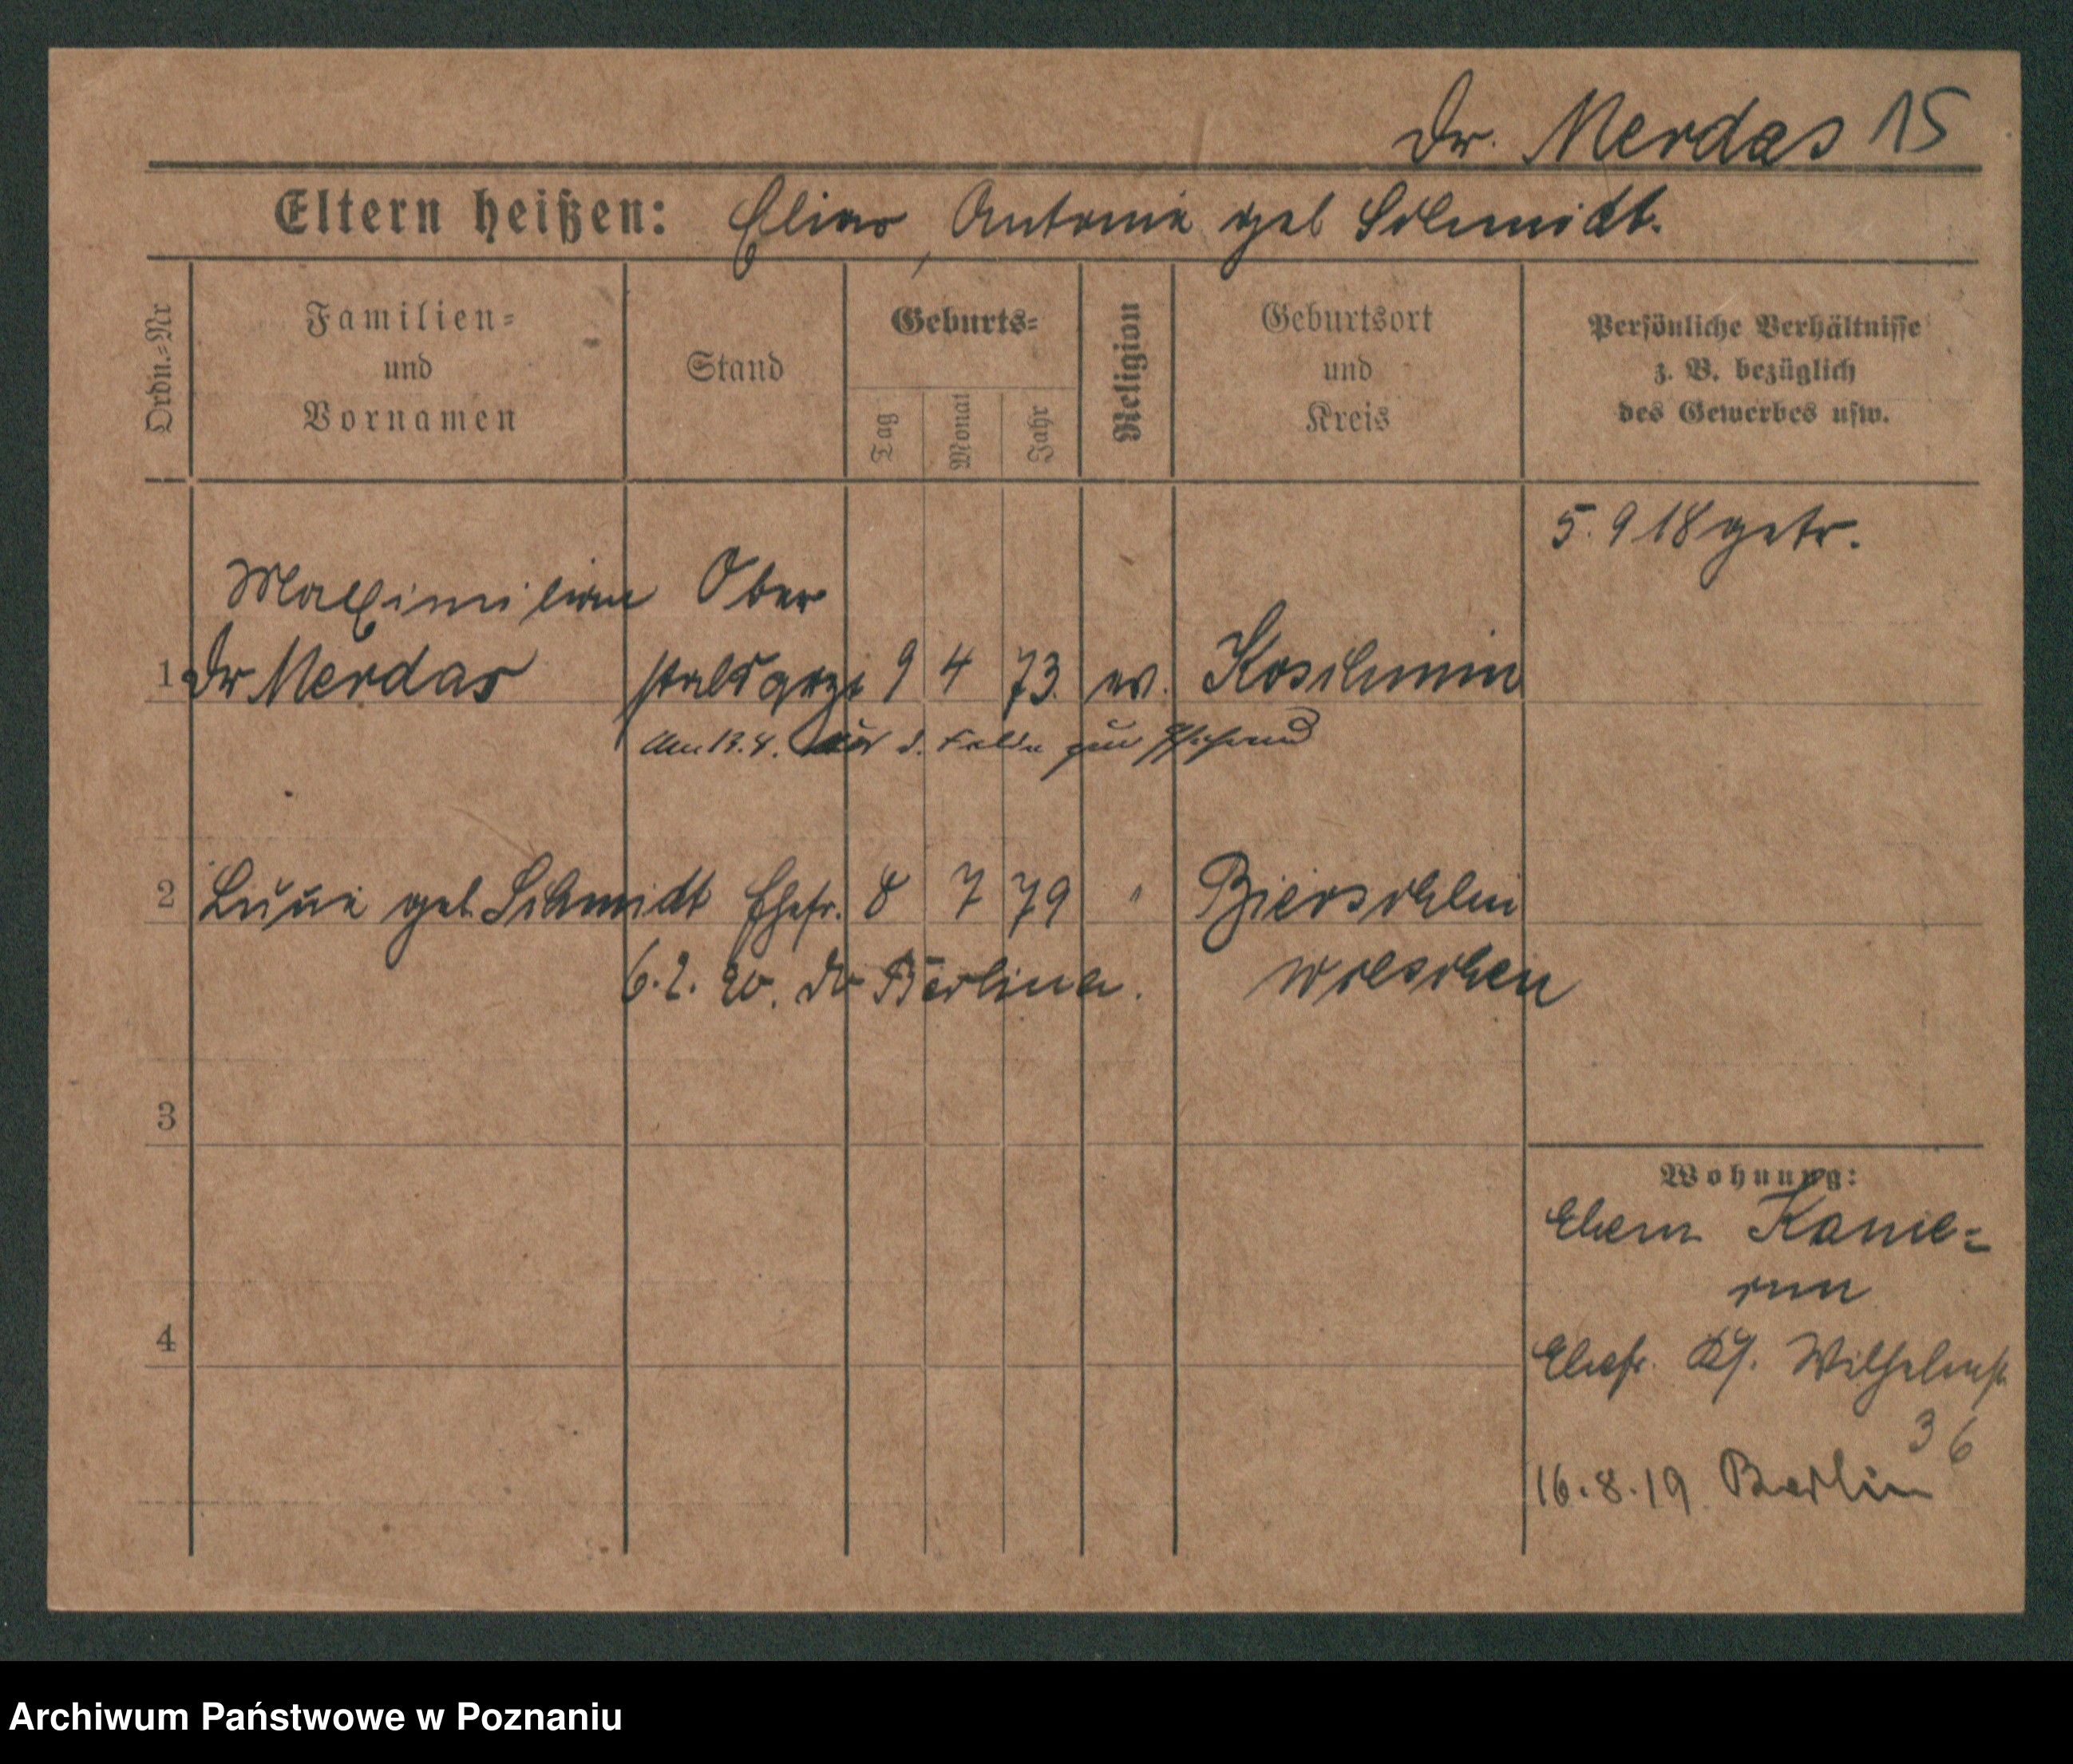 Dr. Merdas 15
Eltern heißen: Elias, Antonie geb Schmidt.
Ordn.=Nr
Familien=
und
Vornamen
Stand
Geburts=
Tag
Monat
Jahr
Religion
Geburtsort
und
Kreis
Persönliche Verhältnisse
z. B. bezüglich
des Gewerbes usw.
5. 9 18 getr.
Maximilian Ober
1 Dr Merdas stabsarzt 9 4 73. ev. Koschmin
d. Felde zur
2 geb. Schmidt Ehefr. 8 7 79 " Bierschlin
6. 2. 20. Berlin Wreschen
3
Wohnung:
Ehem Kame=
run
4
Ehefr. Wilhelmst
36
16.8.19. Berlin
Archiwum Państwowe w Poznaniu